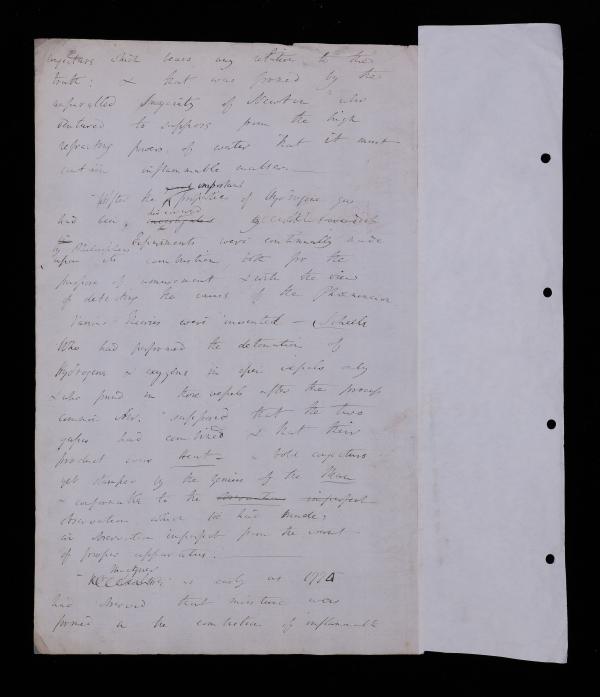 conjecture which bears any relation to the
truth: & that was formed by the
unparalled Sagacity of Newton who
ventured to suppose from the high
refracting powers of water that it must
contain inflammable matter. —
After the most important properties of Hydrogene gas
had been discovered
by Philosophers Experiments were continually made
upon its combustion, both for the
purpose of amusement & with the view
of detecting the cause of the Phænomenon
Various theories were invented — Scheele
Who had performed the detonation of
Hydrogene & oxygene in open vessels only
& who found in those vessels after the process
common Air. supposed that the two
gases had combined & that their
product was Heat — a bold conjecture
yet stamped by the genius of the Man
& conformable to the imperfect
observation which he had made;
an observation imperfect from the want
of proper apparatus. —
Macquer as early as 177
had observed that moisture was
formed in the combustion of inflammable